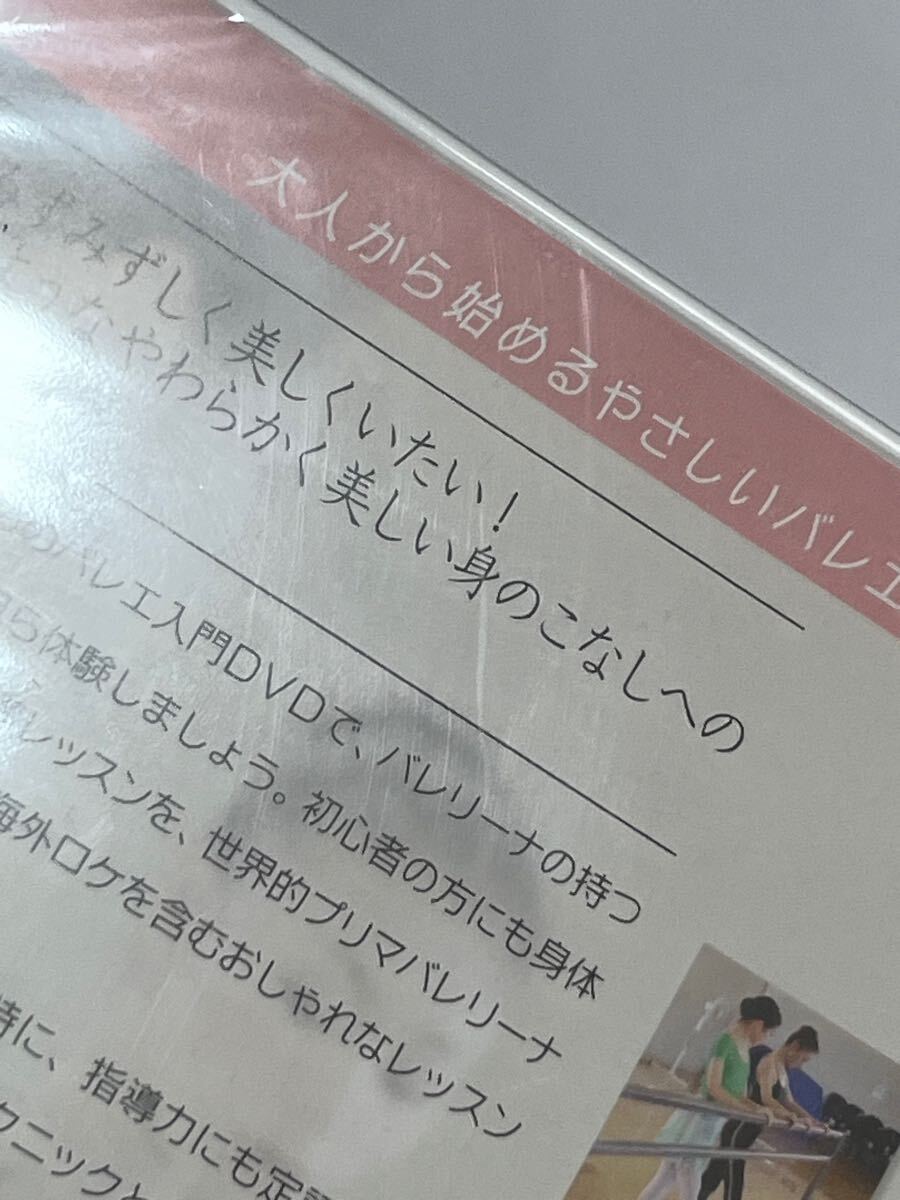 大人から始めるやさしいバレエ
みずみずしく美しくいたい！
うなやわらかく美しい身のこなしへの
のバレエ入門DVDで、バレリーナの持つ
ら体験しましょう。初心者の方にも身体
レッスンを、世界的プリマバレリーナ
海外ロケを含むおしゃれなレッスン
特に、指導力にも定評
クニックと